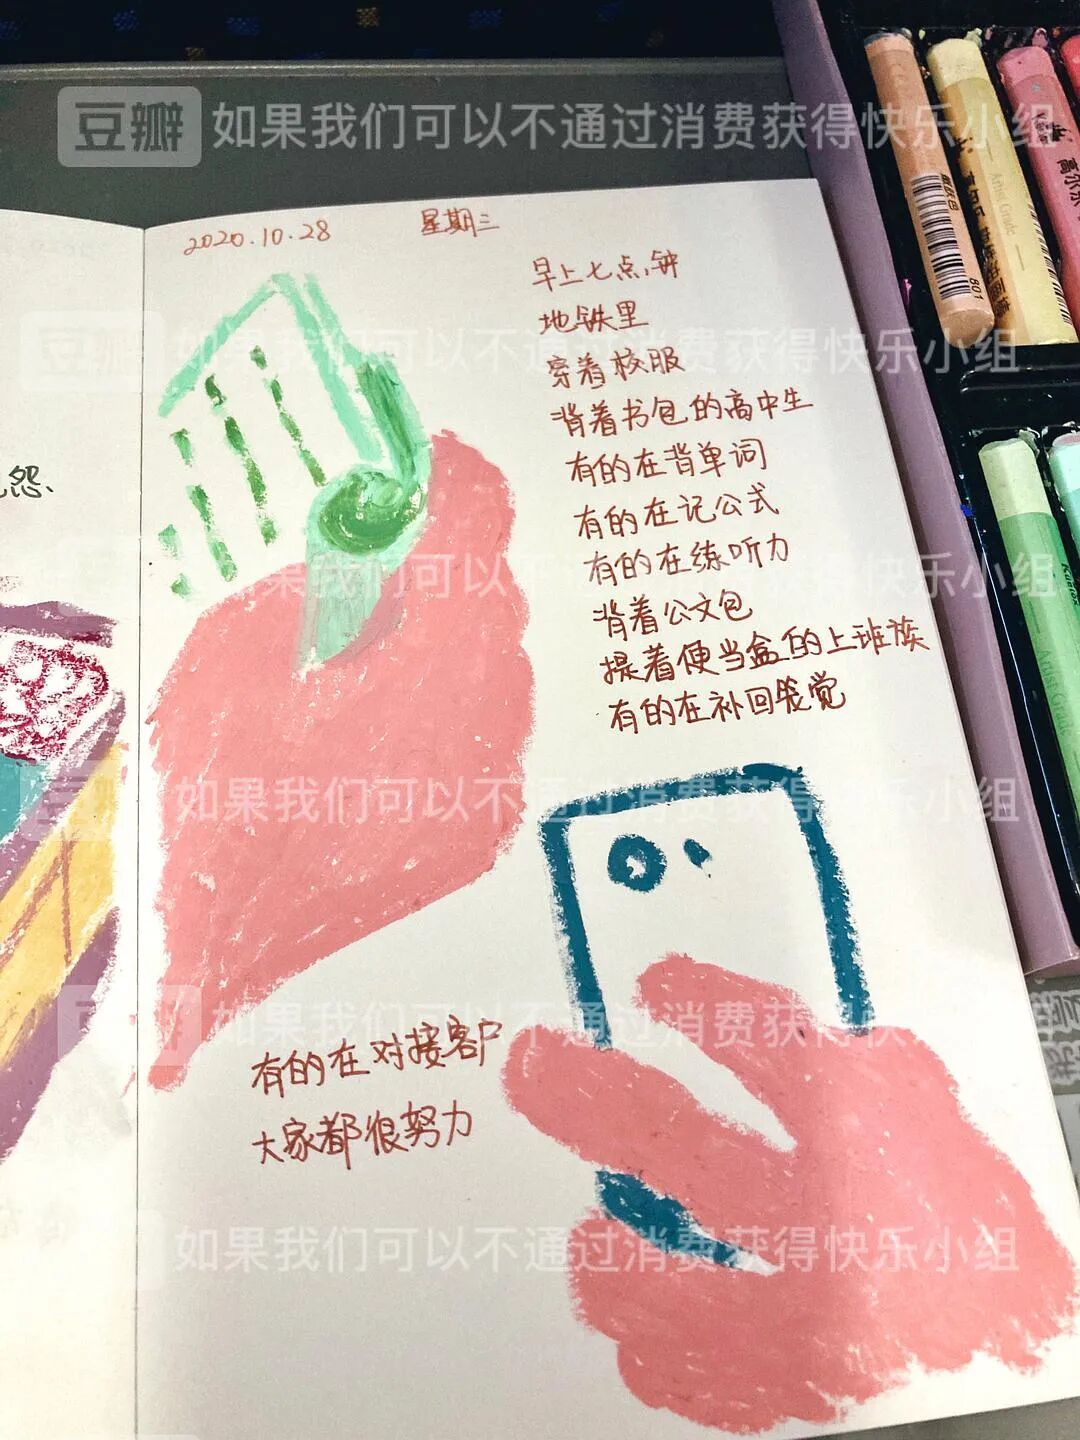 豆瓣 如果我们可以不通过消费获得快乐小组
2020.10.28 星期三
早上七点钟
地铁里
穿着校服
背着书包的高中生
有的在背单词
有的在记公式
有的在练听力
背着公文包
提着便当盒的上班族
有的在补回笼觉
有的在对接客户
大家都很努力
怨、
豆瓣 如果我们可以不通过消费获得快乐小组
如果我们可以不通过消费获得快乐小组
豆瓣 如果我们可以不通过消费获得快乐小组
豆瓣 如果我们可以不通过消费获得快乐小组
豆瓣 如果我们可以不通过消费获得快乐小组
801
Artist Grade